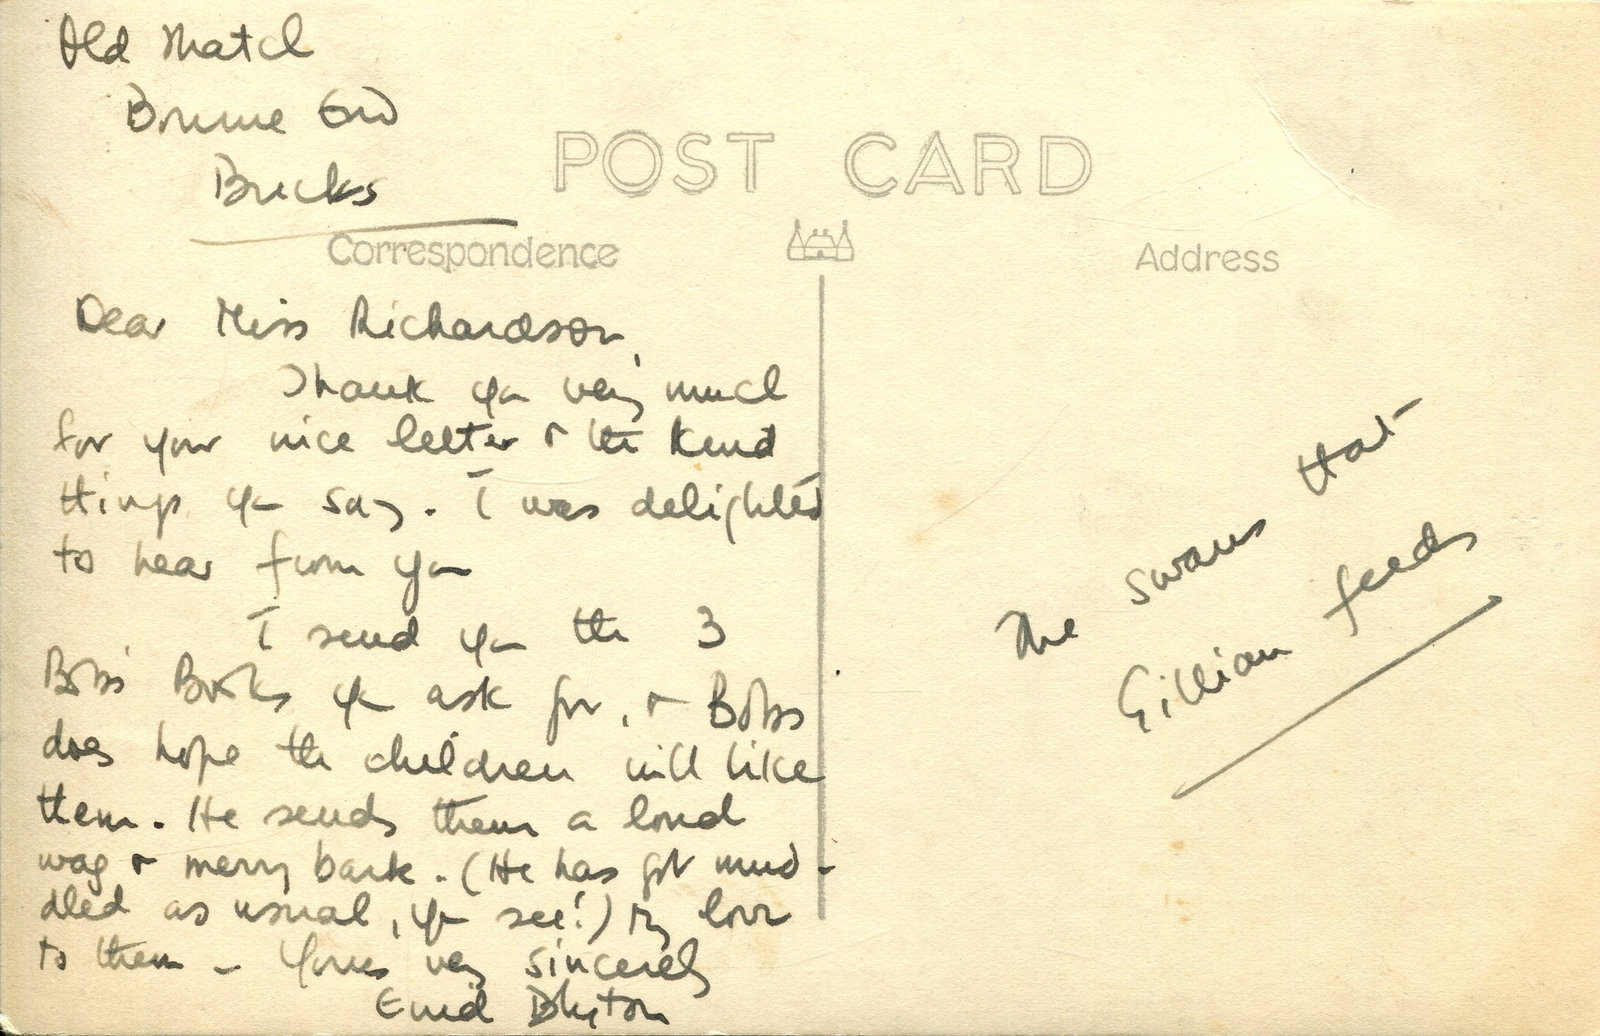 Old Thatch
Bourne End
Bucks
POST CARD
Correspondence
Address
Dear Miss Richardson,
Thank you very much
for your nice letter & the kind
things you say. I was delighted
to hear from you
I send you the 3
Bobs' Books you ask for, & Bobs
does hope the children will like
them. He sends them a loud
wag & merry bark. (He has got mud-
dled as usual, you see!) My love
to them – Yours very sincerely
Enid Blyton
The swans that
Gillian feeds